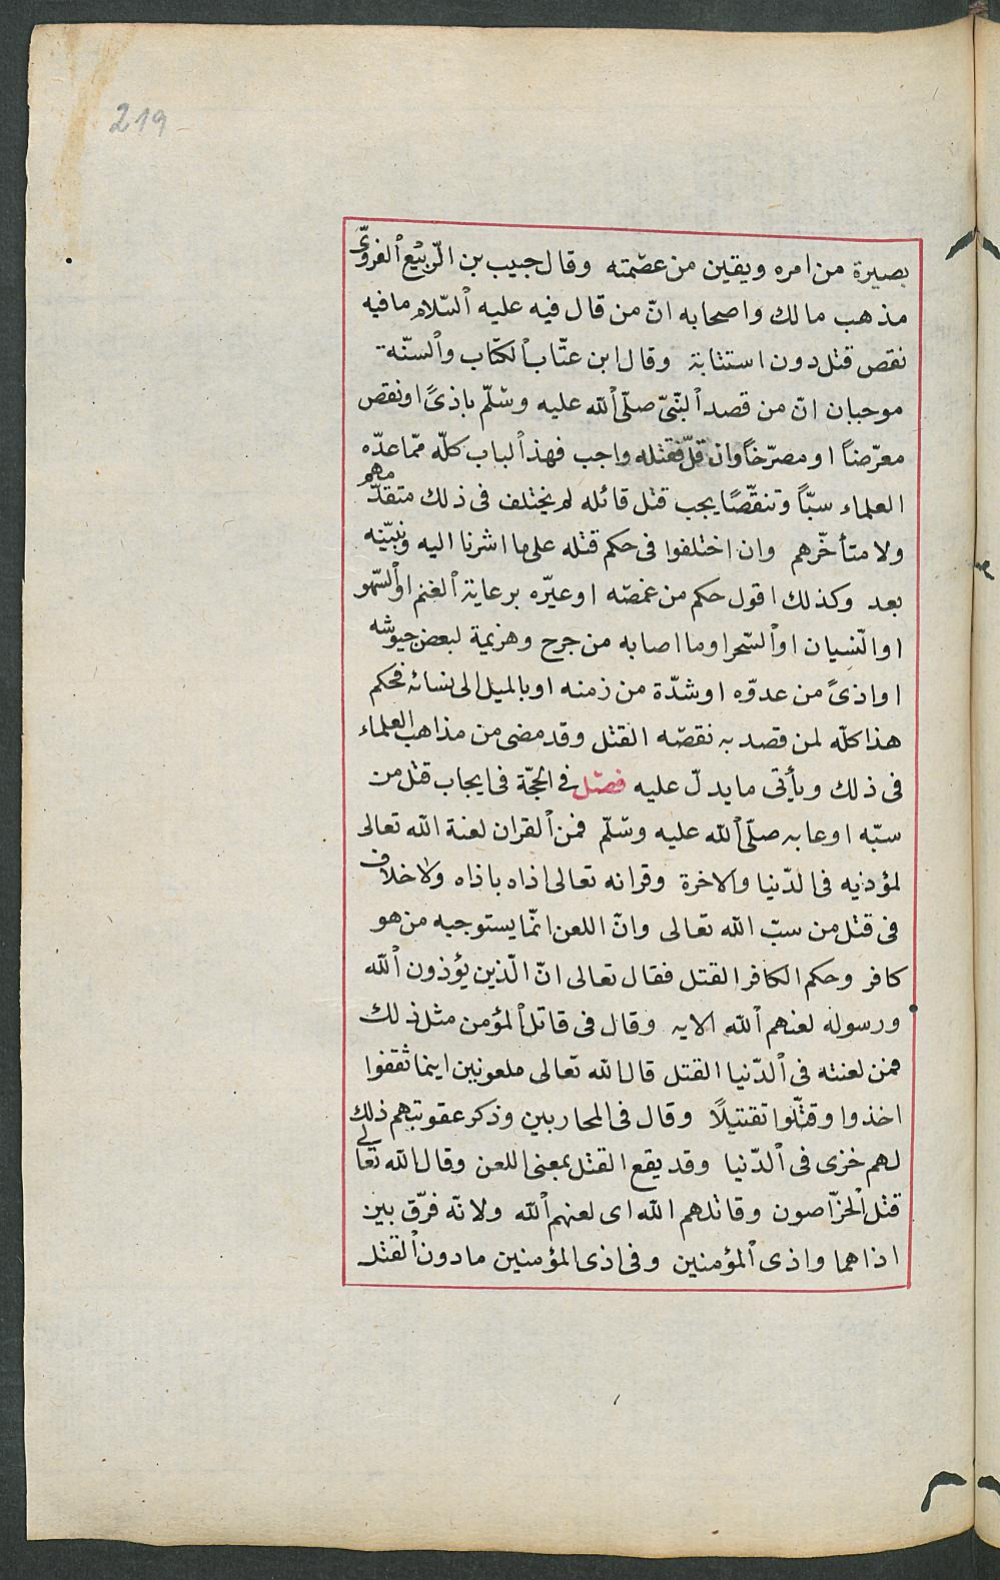 219
بصيرة من امره ويقين من عصمته وقال حبيب بن الرّبيع القروىّ
مذهب مالك واصحابه انّ من قال فيه عليه السّلام ما فيه
نقص قتل دون استتابة وقال ابن عتّاب الكتاب والسنّة
موجبان انّ من قصد النّبىّ صلّى الله عليه وسلّم باذىً او نقص
معرّضاً او مصرّحاً وان قلّ فقتله واجب فهذ الباب كلّه ممّا عدّه
العلماء سبّاً وتنقّصًا يجب قتل قائله لم يختلف فى ذلك متقدّمهم
ولا متأخّرهم وان اختلفوا فى حكم قتله على ما اشرنا اليه ونبيّنه
بعد وكذلك اقول حكم من غمصه او عيّره برعاية الغنم او السّهو
او النّسيان او السّحر او ما اصابه من جرح وهزيمة لبعض جيوشه
او اذىً من عدوّه او شدّة من زمنه او بالميل الى نسائه فحكم
هذا كلّه لمن قصد به نقصه القتل وقد مضى من مذاهب العلماء
فى ذلك ويأتى ما يدلّ عليه فصل فى الحجّة فى ايجاب قتل من
سبّه او عابه صلّى الله عليه وسلّم فمن القران لعنة الله تعالى
لمؤذيه فى الدّنيا والاخرة وقرانه تعالى اذاه باذاه ولا خلاف
فى قتل من سبّ الله تعالى وانّ اللعن انّما يستوجبه من هو
كافر وحكم الكافر القتل فقال تعالى انّ الّذين يؤذون الله
ورسوله لعنهم الله الايه وقال فى قاتل المؤمن مثل ذلك
فمن لعنته فى الدّنيا القتل قال الله تعالى ملعونين اينما ثقفوا
اخذوا وقتّلوا تقتيلًا وقال فى المحاربين وذكر عقوبتهم ذلك
لهم خزى فى الدّنيا وقد يقع القتل بمعنى اللعن وقال الله تعالى
قتل الخرّاصون وقاتلهم الله اى لعنهم الله ولانّه فرّق بين
اذاهما واذى المؤمنين وفى اذى المؤمنين ما دون القتل